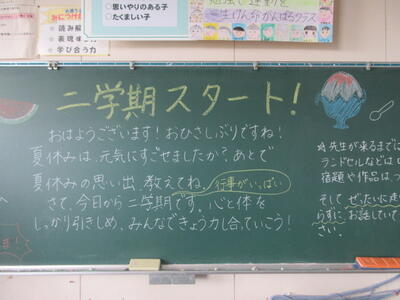 ○思いやりのある子
○たくましい子
みにつけ
読み解
表現す
学び合う力
一生けん命がんばるクラス
二学期スタート!
おはようございます!おひさしぶりですね!
夏休みは、元気にすごせましたか?あとで
夏休みの思い出、教えてね。行事がいっぱい
さて、今日から二学期です。心と体を
しっかり引きしめ、みんなできょう力し合っていこう!
先生が来るまでに
ランドセルなどは
宿題や作品は
そして、ぜったいに走
らずに、お話していて
さい。